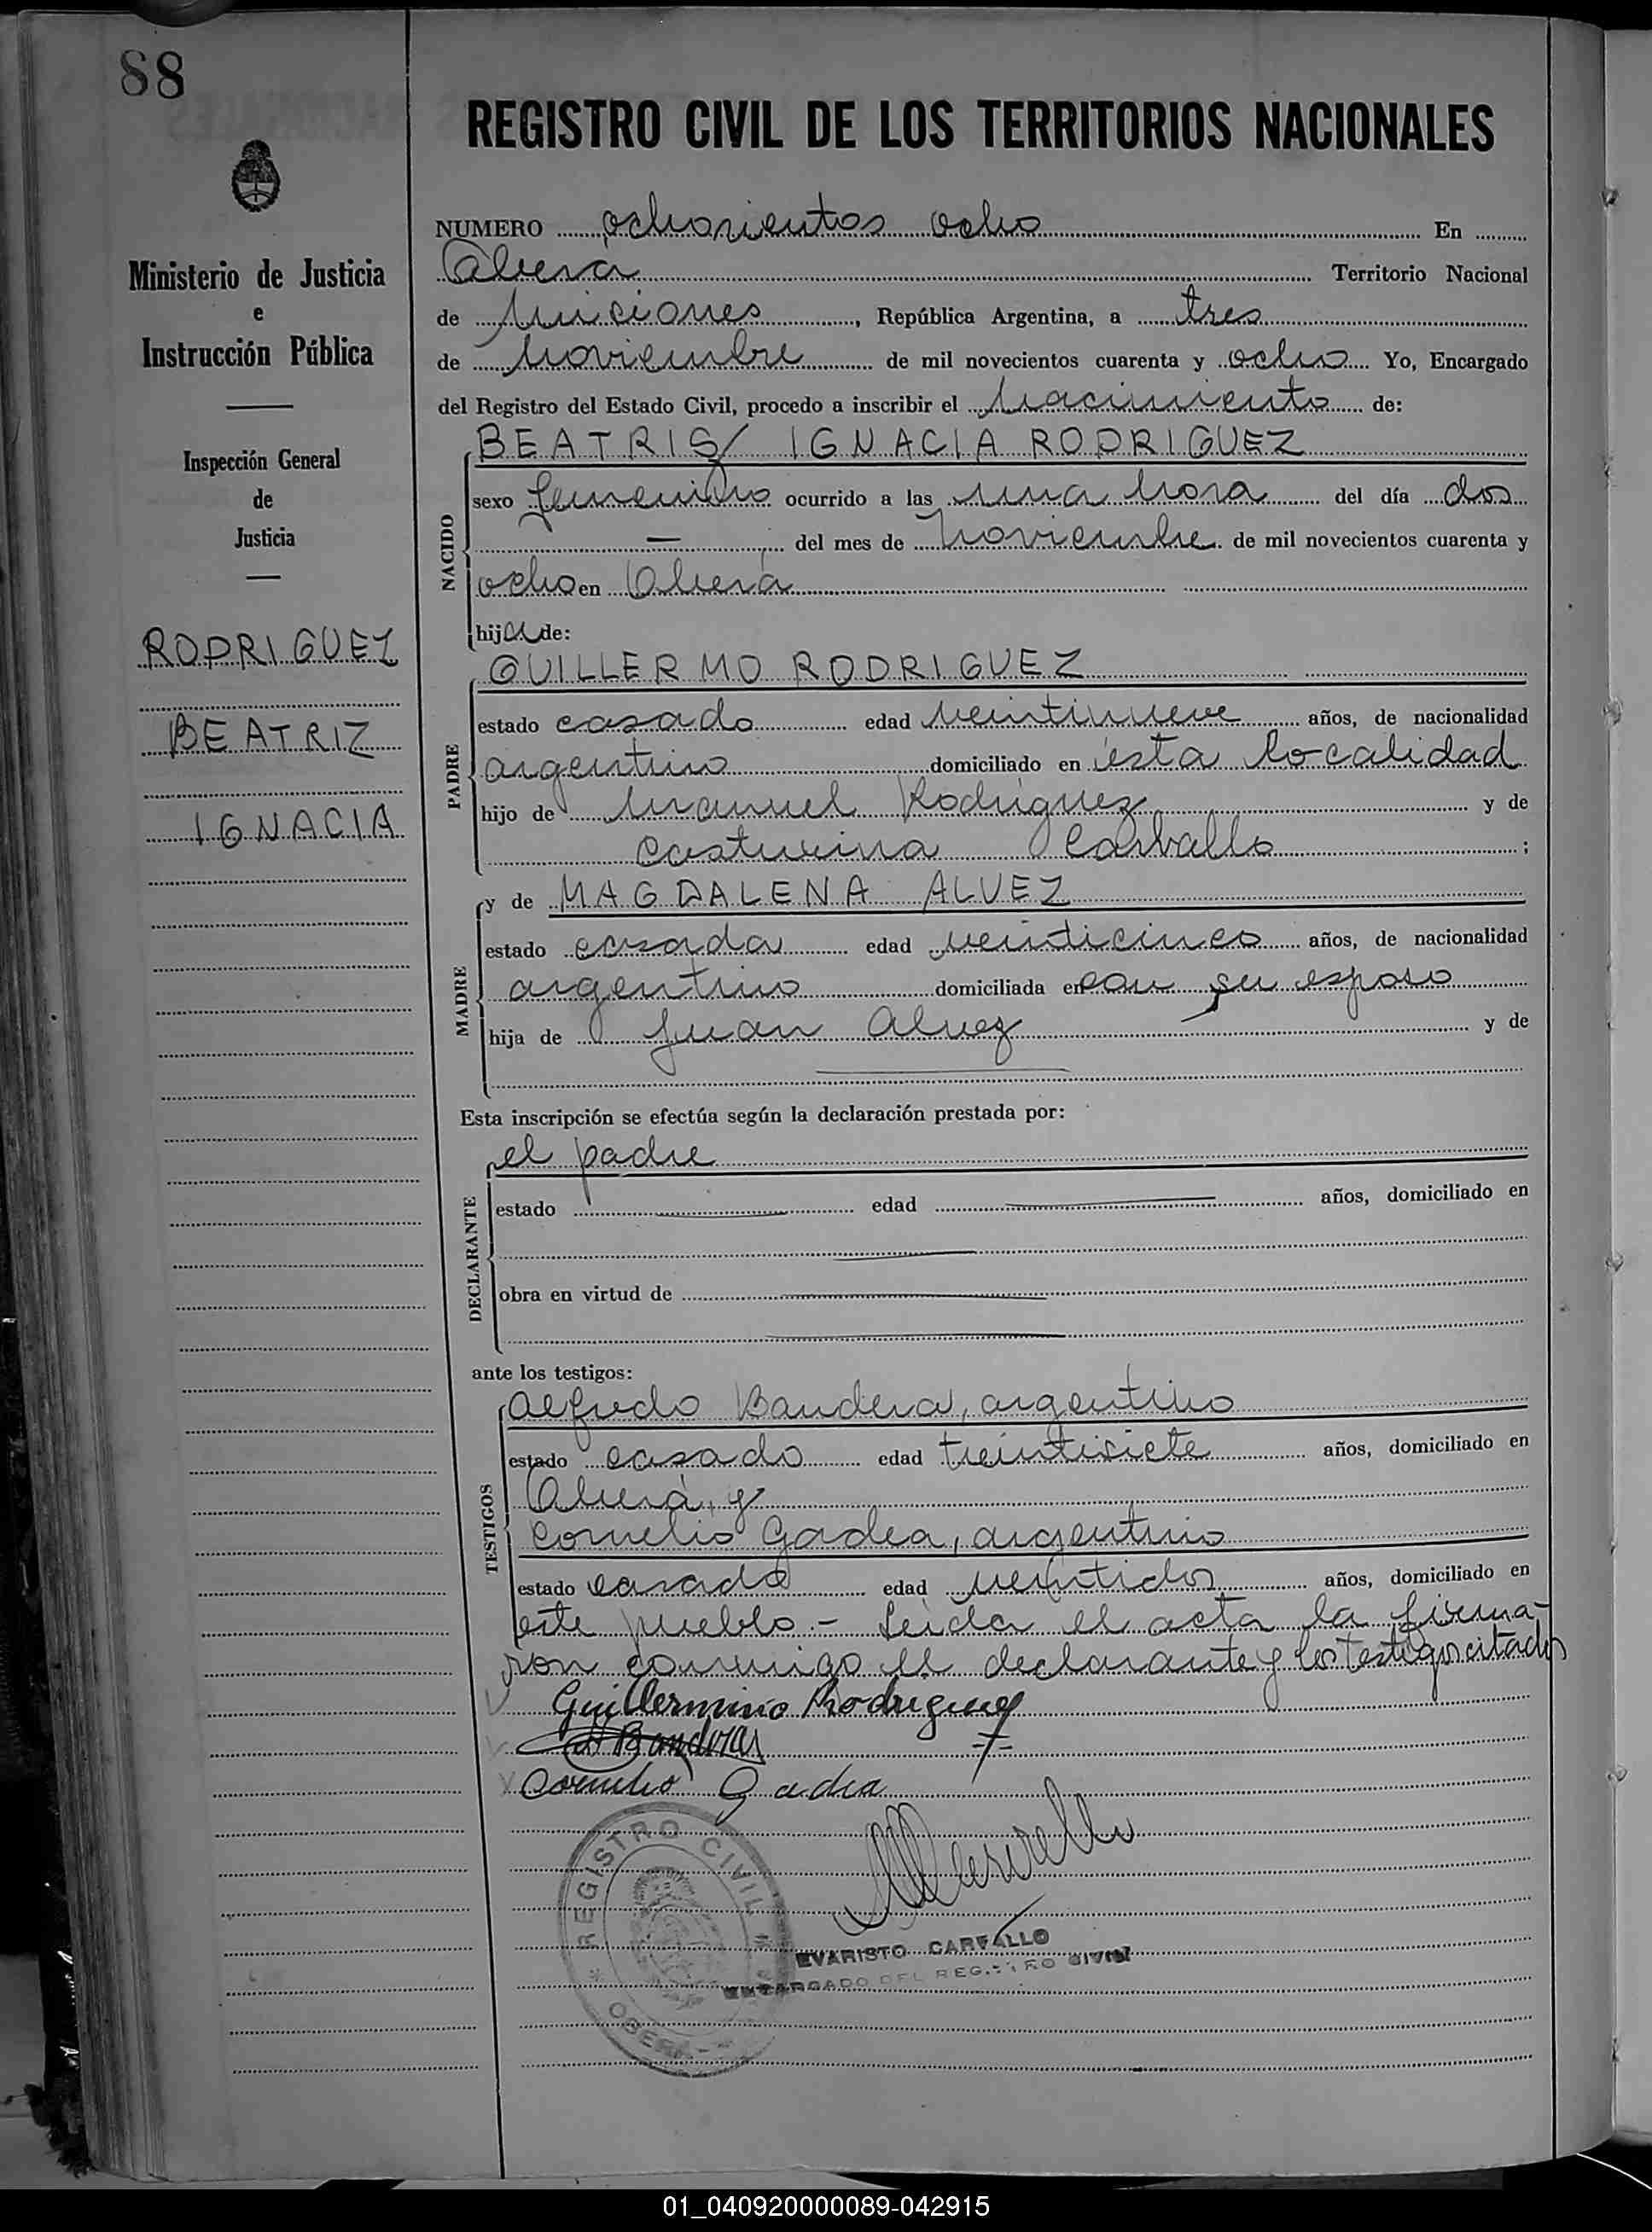 88
REGISTRO CIVIL DE LOS TERRITORIOS NACIONALES
Ministerio de Justicia
e
Instrucción Pública
Inspección General
de
Justicia
RODRIGUEZ
BEATRIZ
IGNACIA
NUMERO ochocientos ocho En
Oberá Territorio Nacional
de Misiones, República Argentina, a tres
de Noviembre de mil novecientos cuarenta y ocho Yo, Encargado
del Registro del Estado Civil, procedo a inscribir el Nacimiento de:
NACIDO
BEATRIS/ IGNACIA RODRIGUEZ
sexo femenino ocurrido a las una hora del día dos
— del mes de noviembre de mil novecientos cuarenta y
ocho en Oberá
hija de:
PADRE
GUILLERMO RODRIGUEZ
estado casado edad veintinueve años, de nacionalidad
argentino domiciliado en ésta localidad
hijo de Manuel Rodriguez y de
Carballo;
MADRE
y de MAGDALENA ALVEZ
estado casada edad veinticinco años, de nacionalidad
argentino domiciliada en con su esposo
hija de Juan Alvez y de
Esta inscripción se efectúa según la declaración prestada por:
DECLARANTE
el padre
estado edad años, domiciliado en
obra en virtud de
ante los testigos:
TESTIGOS
Alfredo Bandera, argentino
estado casado edad treintisiete años, domiciliado en
Oberá, y
Cornelio Gadea, argentino
estado casado edad veintidos años, domiciliado en
este pueblo.- Leida el acta la firma-
ron conmigo el declarante y los testigos citados
Guillermino Rodriguez
A Banderas
Cornelio Gadea
REGISTRO CIVIL
OBERA
EVARISTO CARVALLO
ENCARGADO DEL REGISTRO CIVIL
01_040920000089-042915